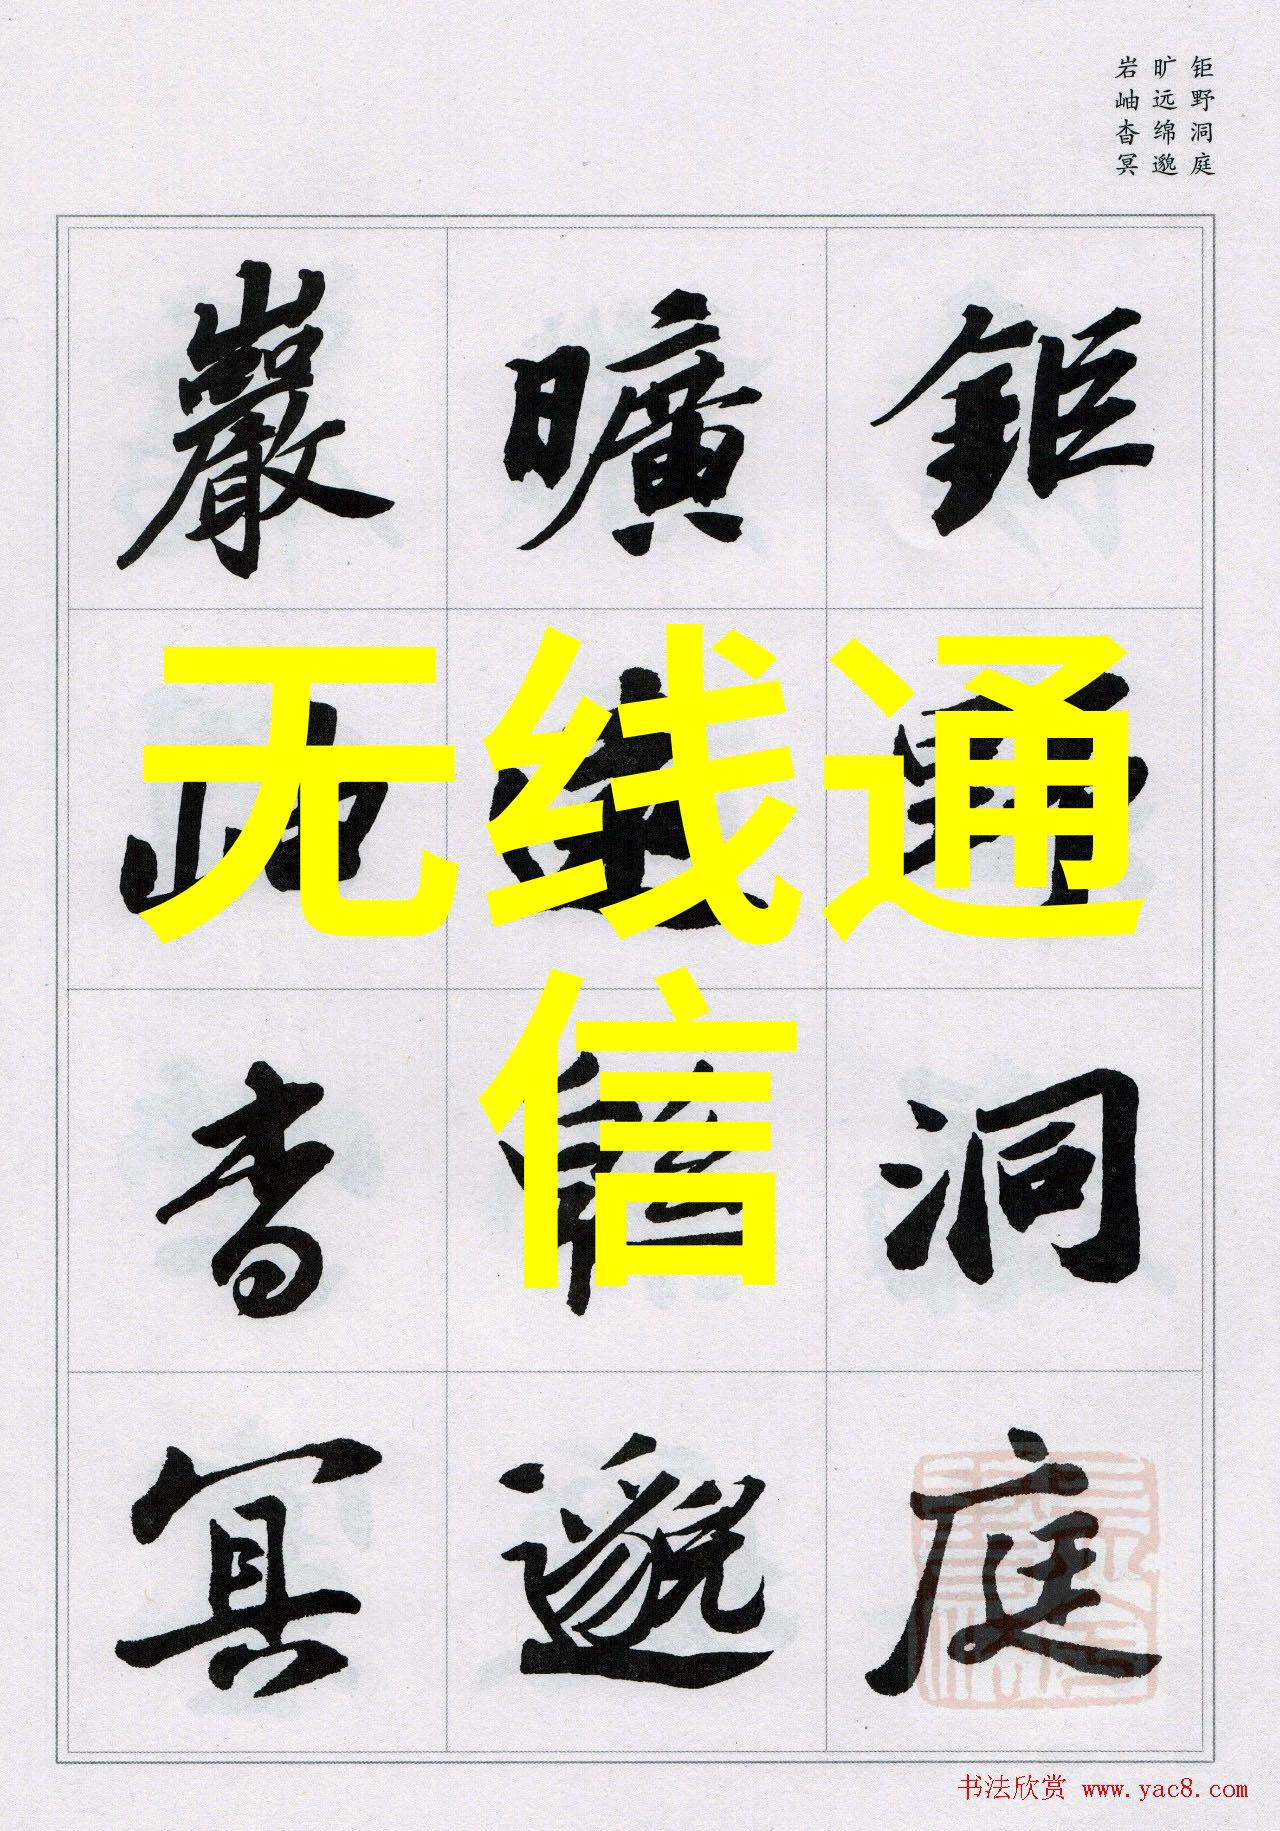 钜野洞庭
旷远绵邈
岩岫杳冥
鉅野洞庭
曠遠緜邈
巖岫杳冥
无线通
信
书法欣赏 www.yac8.com